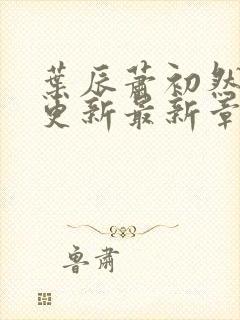 葉辰蕭初然
更新最新章
魯肅